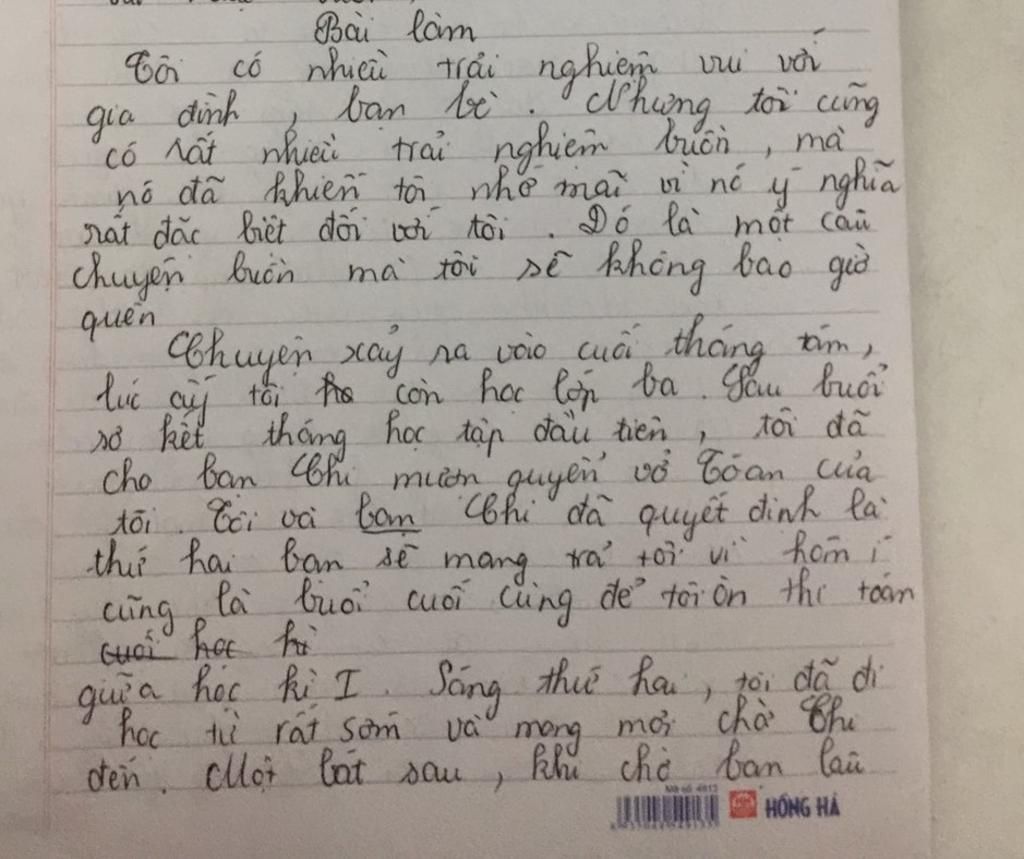 Bài làm
Tôi có nhiều trải nghiệm vui với
gia đình , bạn bè . Nhưng tôi cũng
có rất nhiều trải nghiệm buồn , mà
nó đã khiến tôi nhớ mãi vì nó ý nghĩa
rất đặc biệt đối với tôi . Đó là một câu
chuyện buồn mà tôi sẽ không bao giờ
quên
Chuyện xảy ra vào cuối tháng tám ,
lúc ấy tôi còn học lớp ba . Sau buổi
sơ kết tháng học tập đầu tiên , tôi đã
cho bạn Chi mượn quyển vở Tóan của
tôi . Tôi và bạn Chi đã quyết định là
thứ hai bạn sẽ mang trả tôi vì hôm í
cũng là buổi cuối cùng để tôi ôn thi toán
cuối học kì
giữa học kì I . Sáng thứ hai , tôi đã đi
học từ rất sớm và mong mỏi chờ Chi
đến . Một lát sau , khi chờ bạn lâu
Mã số 4812
HỒNG HÀ